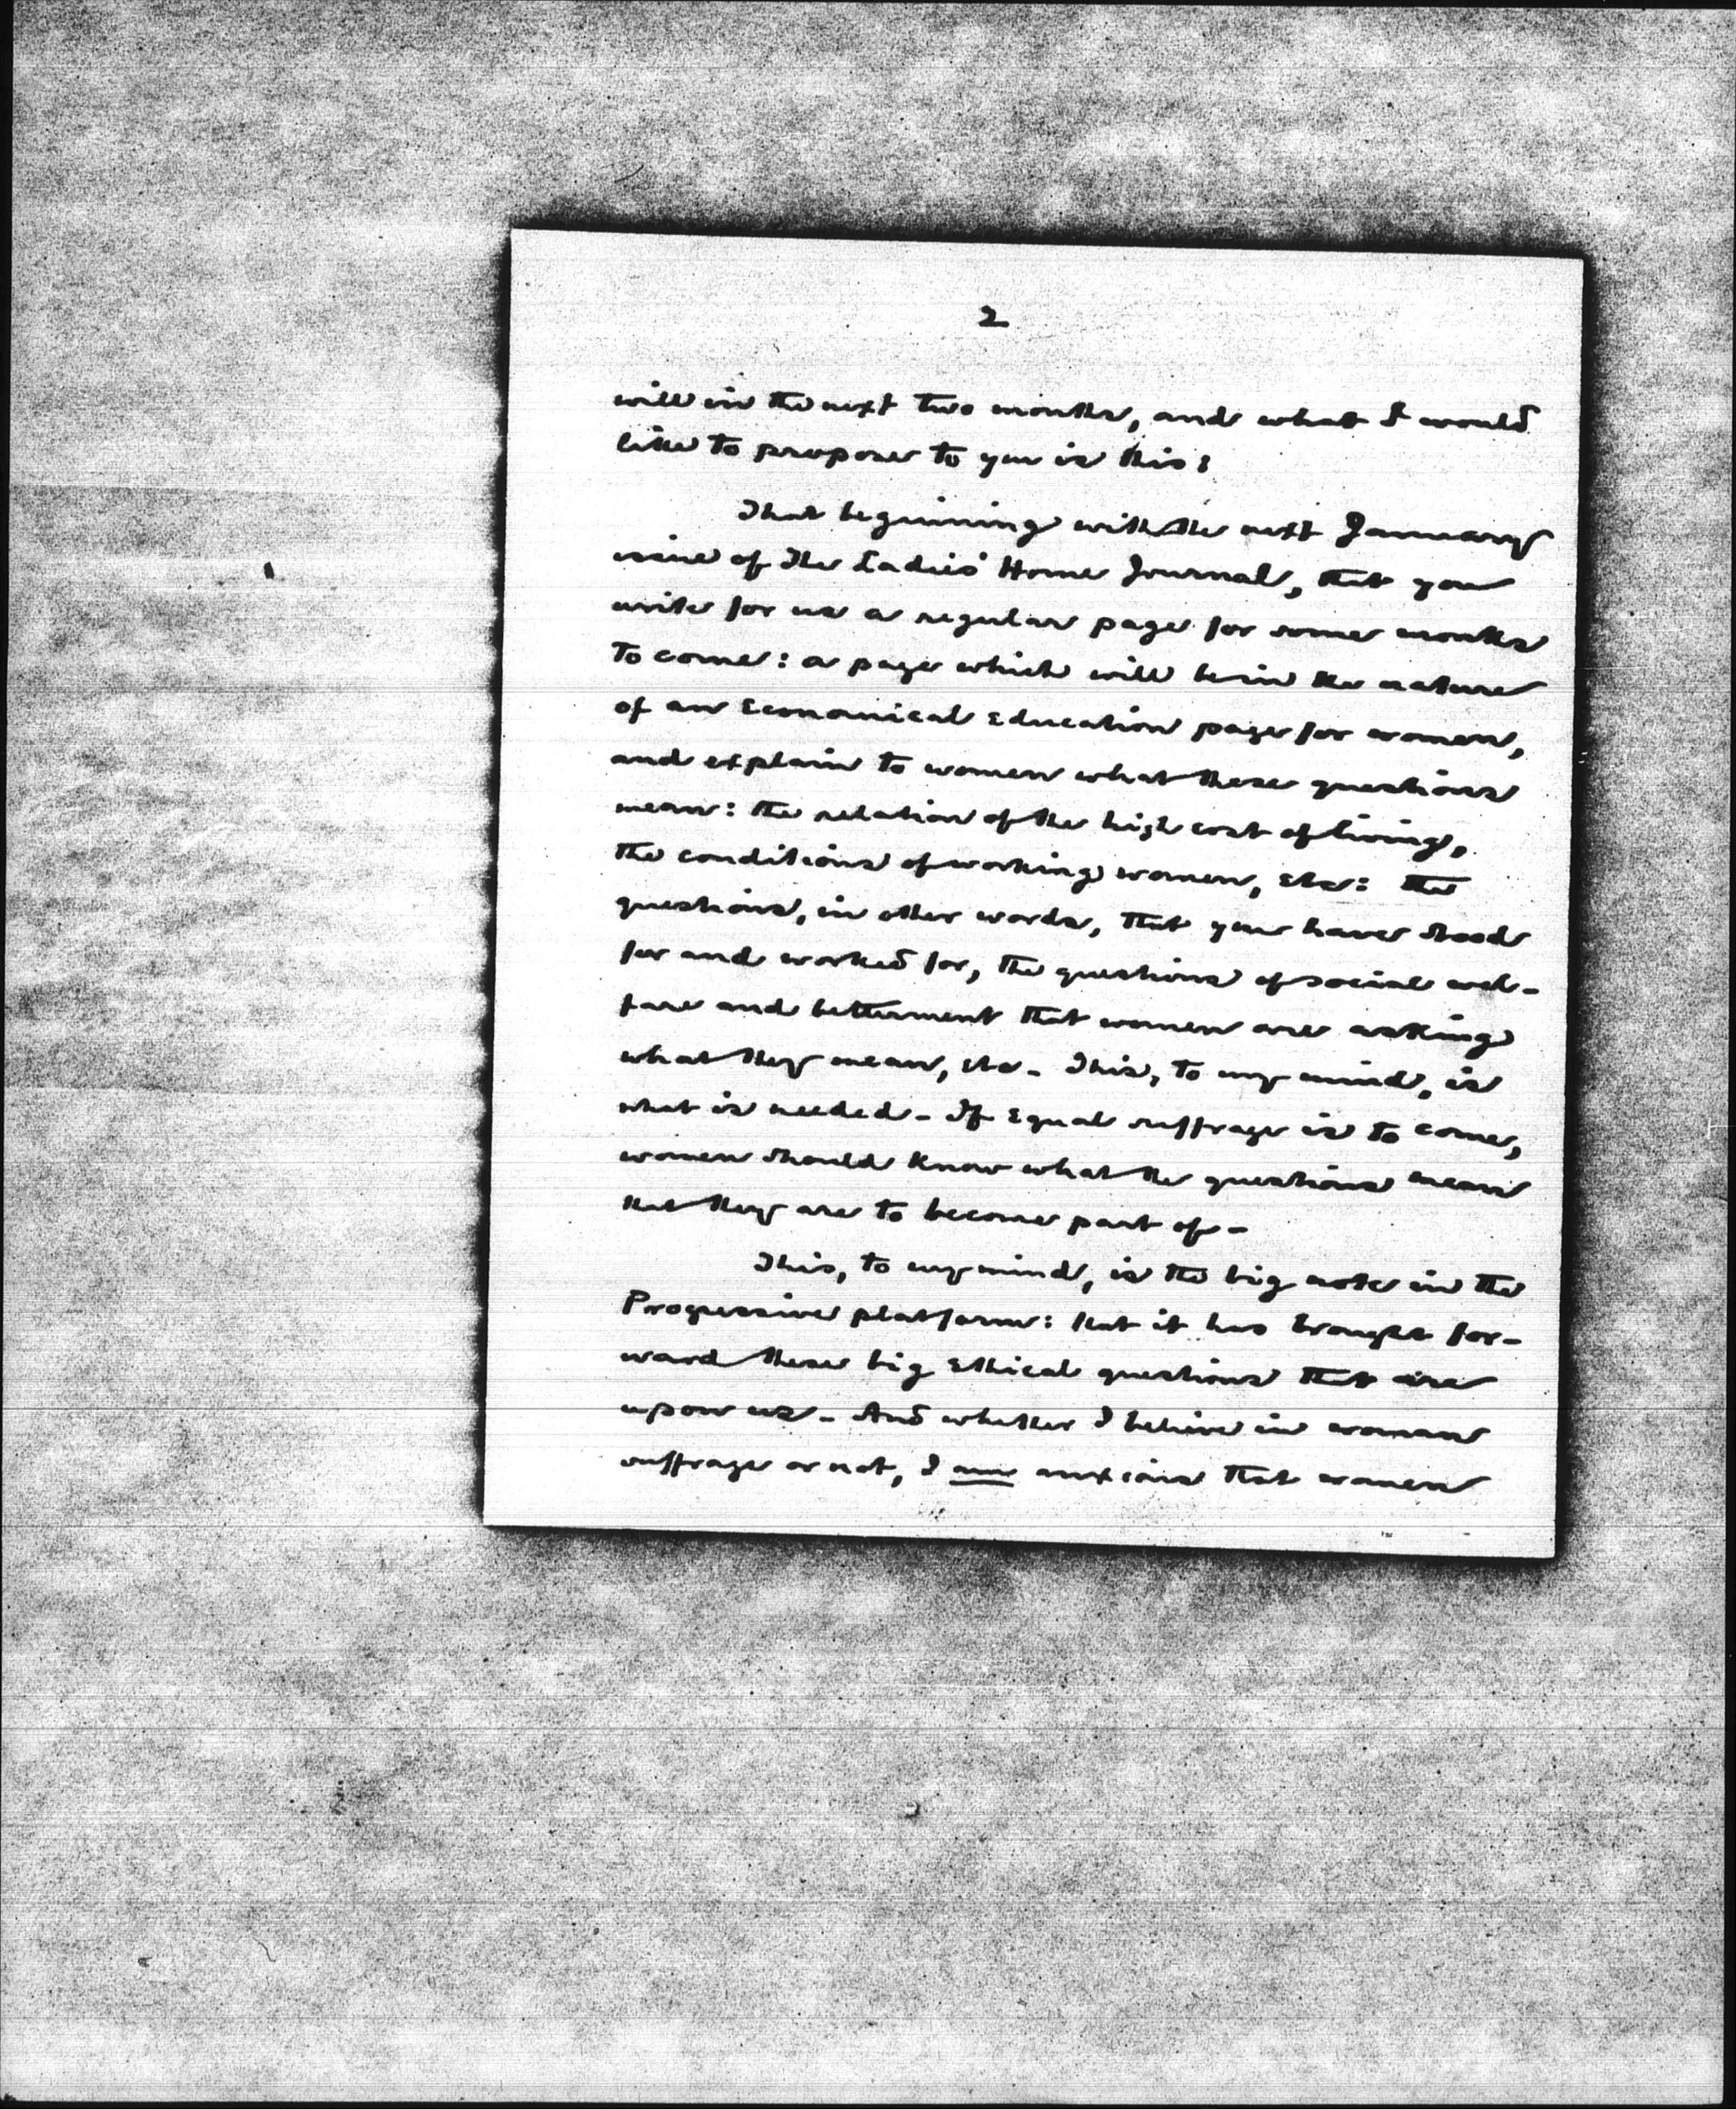 2
will in the next two months, and what I would
like to propose to you is this:
That beginning with the next January
issue of The Ladies' Home Journal, that you
write for us a regular page for some months
to come: a page which will be in the nature
of an Economical Education page for women,
and explain to women what these questions
mean: the relation of the high cost of living,
the conditions of working women, etc: the
questions, in other words, that you have stood
for and worked for, the questions of social wel-
fare and betterment that women are asking
what they mean, etc. This, to my mind, is
what is needed. If Equal suffrage is to come,
women should know what the questions mean
that they are to become part of.
This, to my mind, is the big note in the
Progressive platform: that it has brought for-
ward these big Ethical questions that are
upon us. And whether I believe in woman
suffrage or not, I am anxious that women